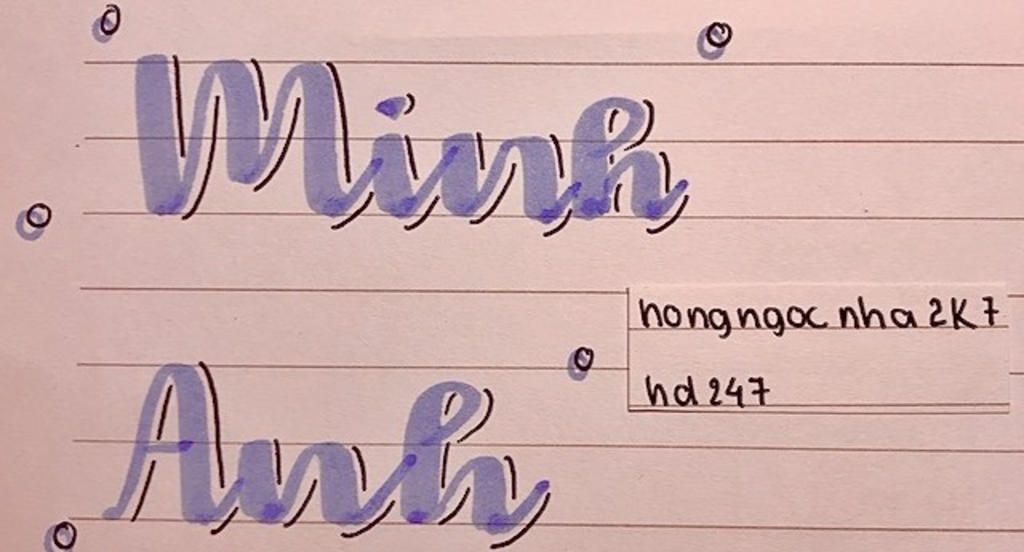 Minh
hongngoc nha 2K7
hd 247
Anh